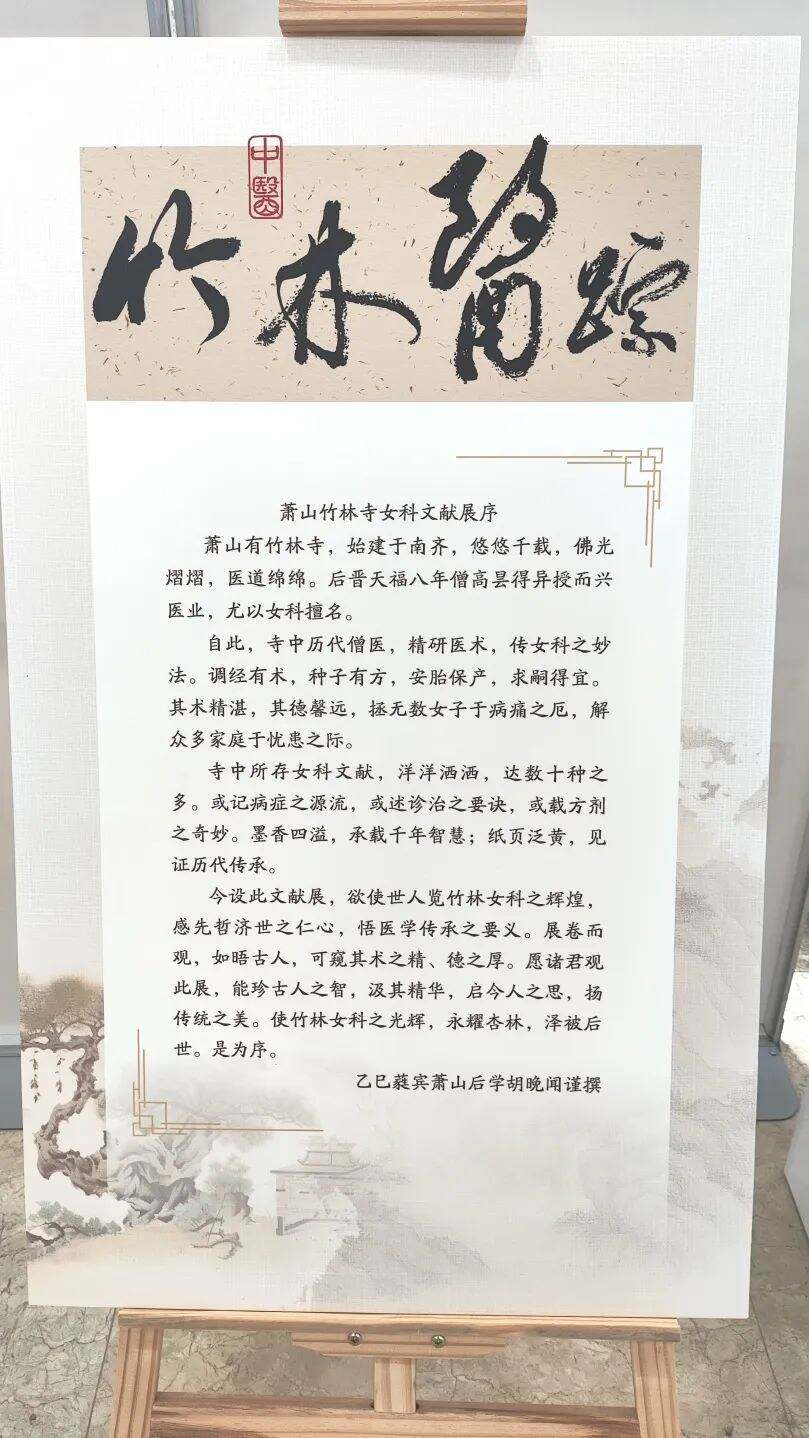 中醫
竹林醫踪
萧山竹林寺女科文献展序
萧山有竹林寺，始建于南齐，悠悠千载，佛光
熠熠，医道绵绵。后晋天福八年僧高昙得异授而兴
医业，尤以女科擅名。
自此，寺中历代僧医，精研医术，传女科之妙
法。调经有术，种子有方，安胎保产，求嗣得宜。
其术精湛，其德馨远，拯无数女子于病痛之厄，解
众多家庭于忧患之际。
寺中所存女科文献，洋洋洒洒，达数十种之
多。或记病症之源流，或述诊治之要诀，或载方剂
之奇妙。墨香四溢，承载千年智慧；纸页泛黄，见
证历代传承。
今设此文献展，欲使世人览竹林女科之辉煌，
感先哲济世之仁心，悟医学传承之要义。展卷而
观，如晤古人，可窥其术之精、德之厚。愿诸君观
此展，能珍古人之智，汲其精华，启今人之思，扬
传统之美。使竹林女科之光辉，永耀杏林，泽被后
世。是为序。
乙巳蕤宾萧山后学胡晚闻谨撰